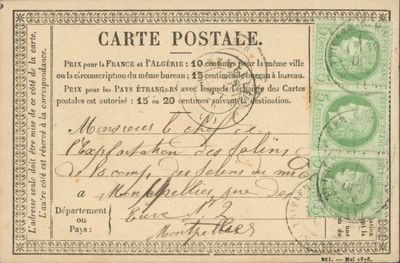 CARTE POSTALE.
PRIX pour la FRANCE et l'ALGÉRIE: 10 centimes pour la même ville
ou la circonscription du même bureau; 15 centimes de bureau à bureau.
PRIX pour les PAYS ÉTRANGERS avec lesquels l'échange des Cartes
postales est autorisé: 15 ou 20 centimes suivant la destination.
L'adresse seule doit être mise de ce côté de la carte.
L'autre côté est réservé à la correspondance.
Monsieur le chef de
l'Exploitation des Salins
de la comp. des Salins du midi
à Montpellier, rue des
Etuve Nº 2
Montpellier
Département
ou
Pays:
961. — Mai 1876.